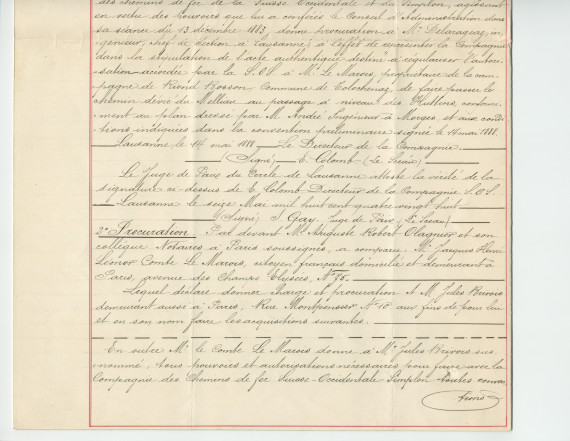 des chemins de fer de la Suisse Occidentale et du Simplon, agissant
en vertu des pouvoirs que lui a conférés le Conseil d'Administration dans
sa séance du 13 décembre 1883, donne procuration à Mr Delarageaz, in-
génieur, chef de section à Lausanne, à l'effet de représenter la Compagnie
dans la stipulation de l'acte authentique destiné à régulariser l'autori-
sation accordée par la S.O.S. à Mr Le Marois, propriétaire de la cam-
pagne de Riond Bosson, Commune de Tolochenaz, de faire passer le
chemin dévié du Mellian au passage à niveau des Ruttins, conformé-
ment au plan dressé par Mr André Ingénieur à Morges et aux condi-
tions indiquées dans la convention préliminaire signée le 14 mai 1888.
Lausanne le 14 mai 1888 Le Directeur de la Compagnie.
(Signé) E. Colomb (Le Sceau)
Le Juge de Paix du Cercle de Lausanne atteste la vérité de la
signature ci-dessus de E. Colomb Directeur de la Compagnie S.O.S.
Lausanne le seize Mai mil huit cent quatre vingt huit
(Signé) J. Gay, Juge de Paix (Le Sceau)
2° Procuration. Par devant Me Auguste Robert Olagnier et son
collègue Notaires à Paris soussignés, a comparu: Mr Jacques Henri
Léonor Comte Le Marois, citoyen français domicilié et demeurant à
Paris, avenue des Champs Elysées, N°
Lequel déclare donner charge et procuration à M. Jules Brivois
demeurant aussi à Paris, Rue Montpensier N° 10 aux fins de pour lui
et en son nom faire les acquisitions suivantes.
En outre Mr le Comte Le Marois donne à Mr Jules Brivois sus
nommé, tous pouvoirs et autorisations nécessaires pour faire avec la
Compagnie des Chemins de fer Suisse-Occidentale-Simplon toutes conven